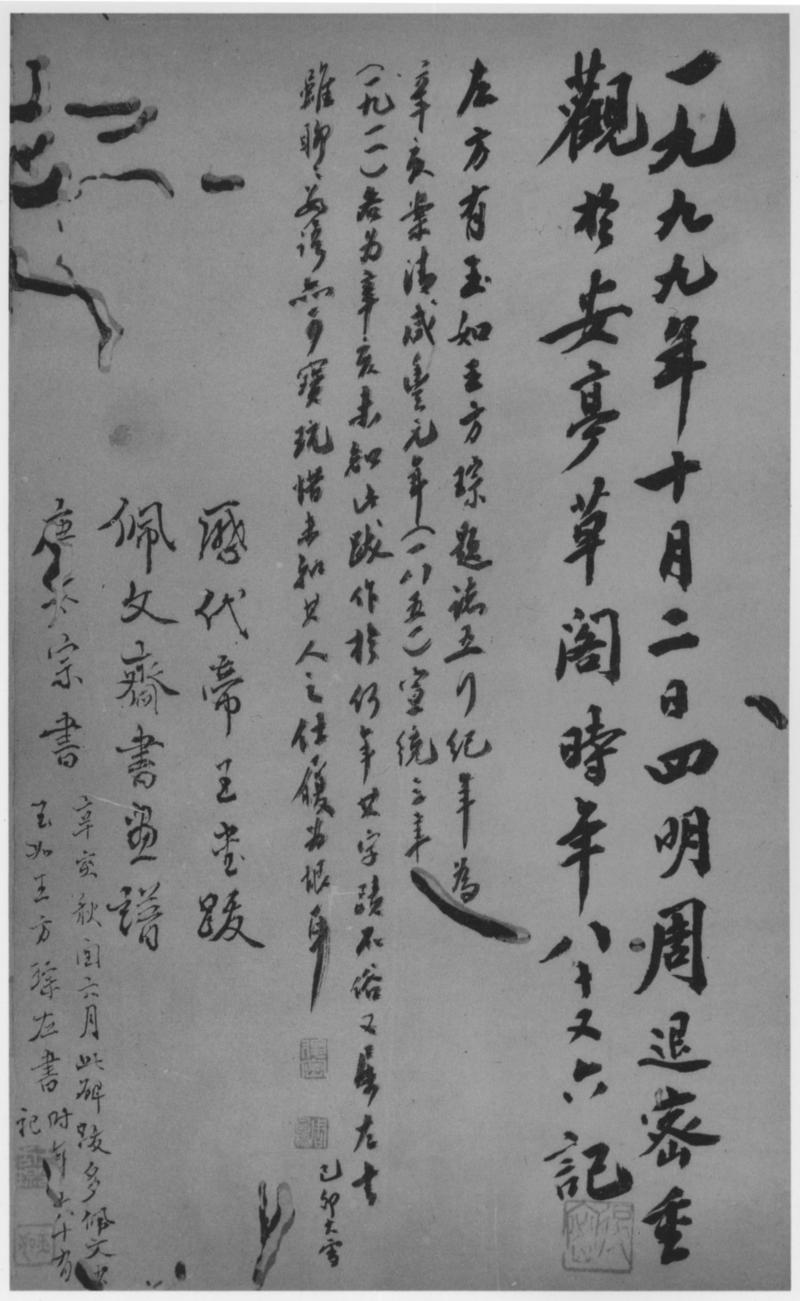 一九九九年十月二日四明周退密重
觀於安亭草閣時年八十又六記
左方有玉如王方琮題識五行紀年為
辛亥案清咸豐元年(一八五一)宣統三年
(一九一一)皆为辛亥未知此跋作於何年其字蹟不俗又屬左書
雖聊〻數語亦可寶玩惜未知其人之仕履为恨耳
己卯大雪
歷代帝王書跋
佩文齋書畫譜
唐太宗書
辛亥秋閏六月此碑跋多佩文
玉如王方琮左書時年六十有
記